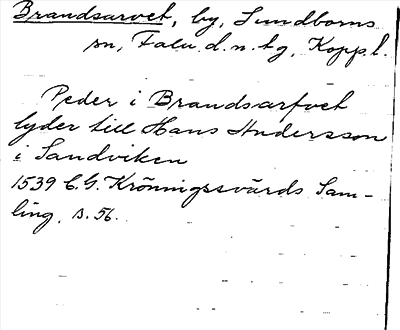 Brandsarvet, by, Sundborns
sn, Falu d.n.tg, Kopp.l.
Peder i Brandsarfvet
lyder till Hans Andersson
i Sandviken
1539 C.G. Krönnigssvärds Sam-
ling, s. 56.